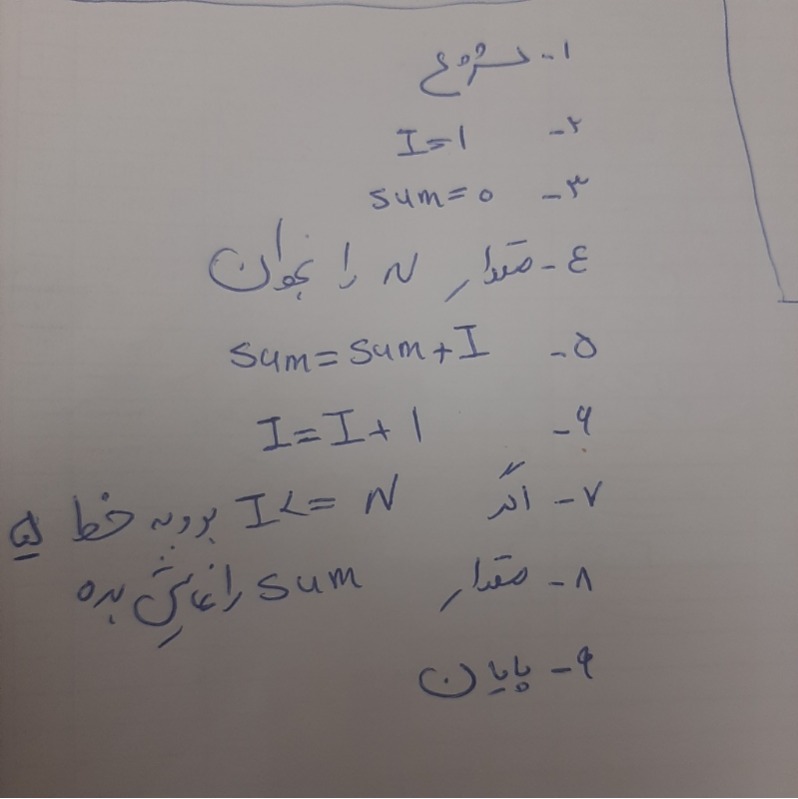 ۱- شروع
۲- I=1
۳- sum=0
٤- مقدار N را بخوان
۵- sum=sum+I
۶- I=I+1
۷- اگر I<=N برو به خط ۵
۸- مقدار sum را نمایش بده
۹- پایان